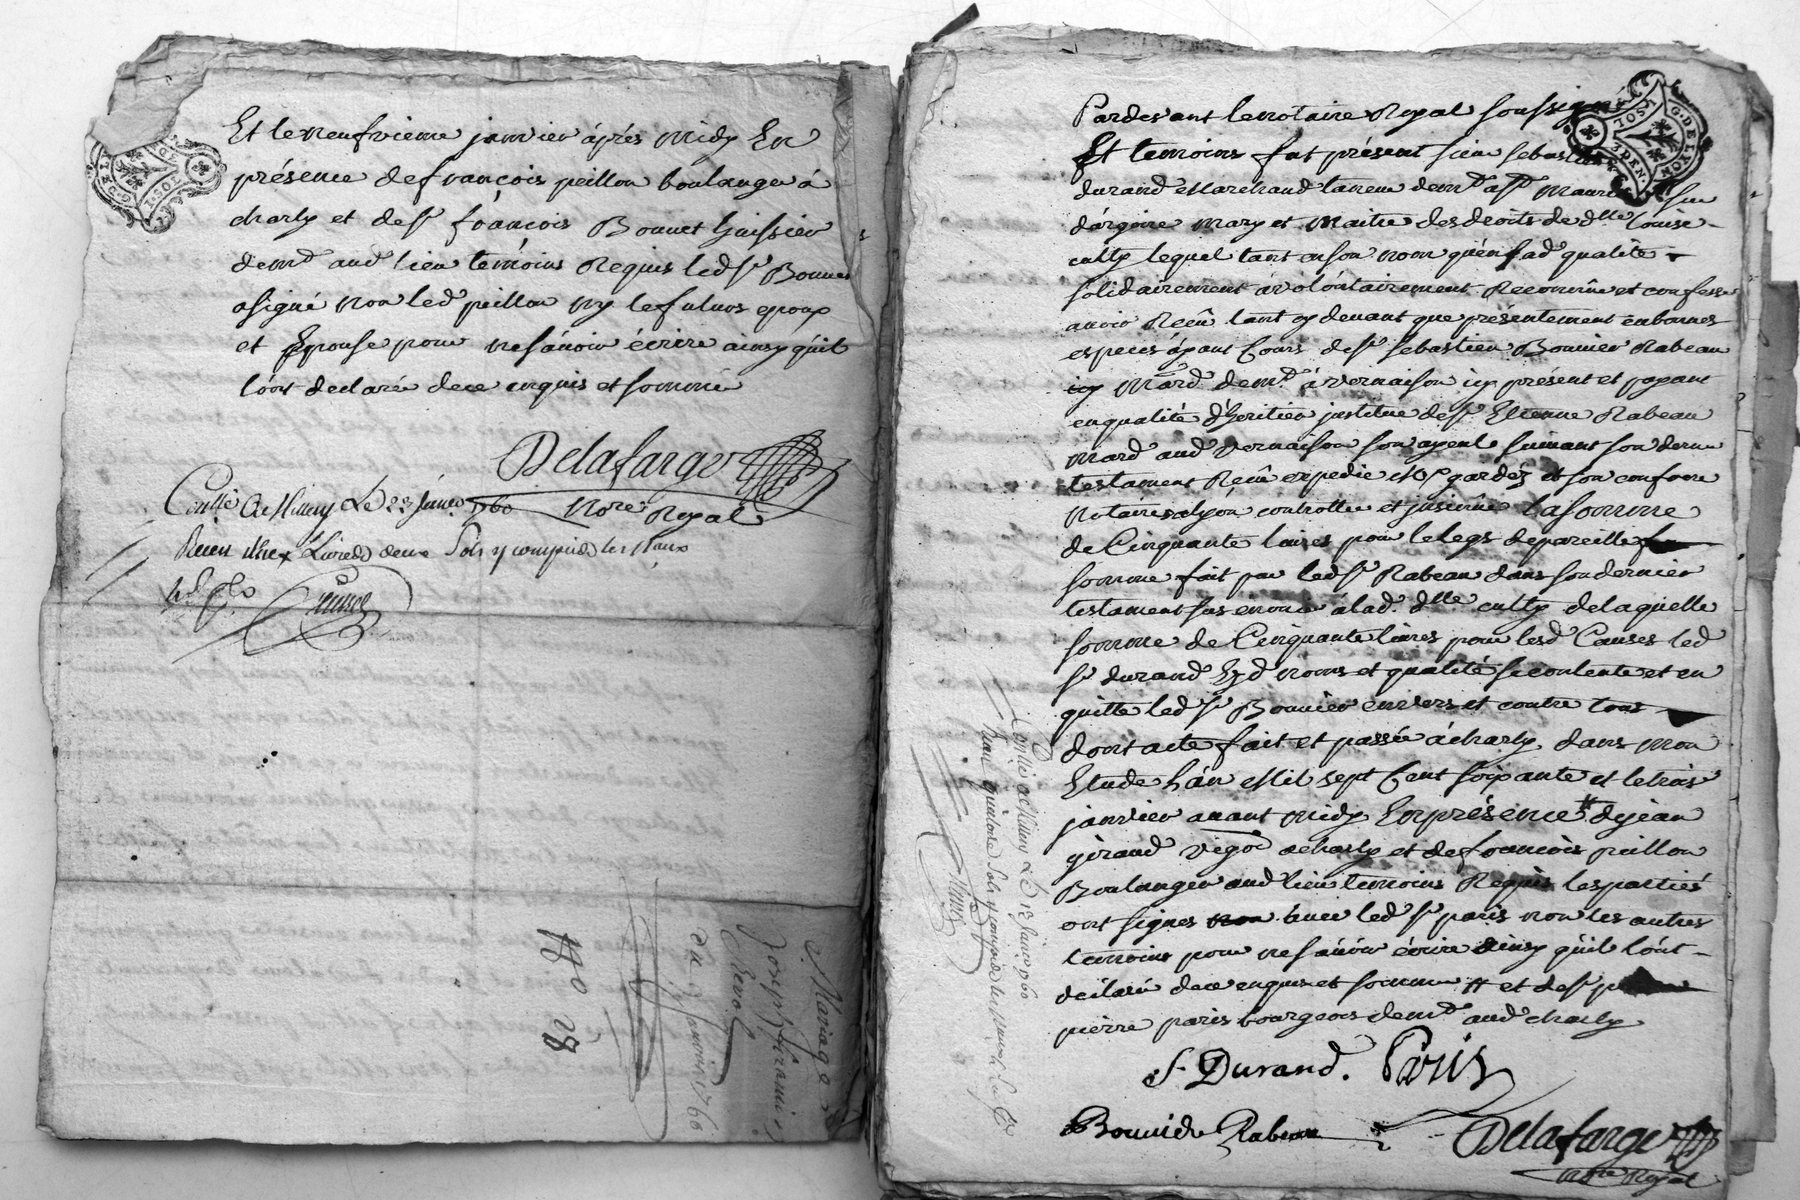 Et le neufvieme janvier après midy En
présence de françois peillon boulanger à
charly et de sr françois Bonnet huissier
demt aud lieu temoins Requis led sr Bonnet
a signé non led peillon ny le futurs epoux
et Epouse pour ne sávoir écrire ainsy qu'il
l'ont declaré de ce enquis et sommé
Delafarge
Nore Royal
Conllé a Millery Le 23 janer 1760
Reçu Livre deux Sols y compris les
Mariage
Joseph
du 9 janvier 1760
No 28
G. DE LYON
2 SOLS
3 DEN.
Pardevant le notaire Royal soussigné
Et temoins fut présent sieur sebastien
durand Marchand taneur demt a st Maurice sur
dargoire mary et maitre des droits de dlle louise
cully lequel tant en son nom qu'en sad qualité
solidairement a volóntairement Reconnu et confesse
avoir Reçû tant cy devant que présentement en bonnes
especes áyant Cours de sr sebastien Bonnier Rabeau
mard demt à vernaison icy présent et payant
en qualité d'heritier institué de sr Etienne Rabeau
mard aud vernaison son ayeul suivant son dernier
testament Reçû expedie Me gardés et son confrere
Notaires a lyón controllé et jnsinué la somme
de Cinquante livres pour le legs de pareille
somme fait par led sr Rabeau dans son dernier
testament sus enoncé à lad. dlle cully de laquelle
somme de Cinquante livres pour lesd Causes led
sr durand Esd noms et qualité se contente et en
quitte led sr Bonnier envers et contre tous
dont acte fait et passée à charly dans mon
Etude l'an Mil sept Cent soixante et le trois
janvier avant midy En présence # de jean
giraud vigón a charly et de françois peillon
Boulanger aud lieu temoins Requis les parties
ont signés avec led sr paris non les autres
temoins pour ne sávoir écrire ainsy qu'il l'ont
déclaré de ce enquis et sommé # et de sr
pierre paris bourgeois demt aud charly
S. Durand. Paris
Bonnier Rabeau
Delafarge
Nore Royal
Conllé a Millery Le 13 janer 1760
Reçu quatorze Sols y compris les